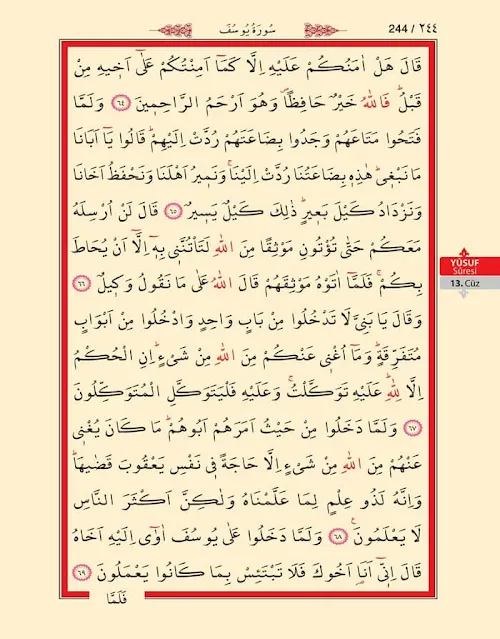 سُورَةُ يُوسُفَ
244 / ٢٤٤
قَالَ هَلْ اٰمَنُكُمْ عَلَيْهِ اِلَّا كَمَٓا اَمِنْتُكُمْ عَلٰٓى اَخ۪يهِ مِنْ
قَبْلُۜ فَاللّٰهُ خَيْرٌ حَافِظًاۖ وَهُوَ اَرْحَمُ الرَّاحِم۪ينَ ٦٤ وَلَمَّا
فَتَحُوا مَتَاعَهُمْ وَجَدُوا بِضَاعَتَهُمْ رُدَّتْ اِلَيْهِمْۜ قَالُوا يَٓا اَبَانَا
مَا نَبْغ۪يۜ هٰذِه۪ بِضَاعَتُنَا رُدَّتْ اِلَيْنَاۚ وَنَم۪يرُ اَهْلَنَا وَنَحْفَظُ اَخَانَا
وَنَزْدَادُ كَيْلَ بَع۪يرٍۜ ذٰلِكَ كَيْلٌ يَس۪يرٌ ٦٥ قَالَ لَنْ اُرْسِلَهُ
مَعَكُمْ حَتّٰى تُؤْتُونِ مَوْثِقًا مِنَ اللّٰهِ لَتَأْتُنَّن۪ي بِه۪ٓ اِلَّٓا اَنْ يُحَاطَ
بِكُمْۚ فَلَمَّٓا اٰتَوْهُ مَوْثِقَهُمْ قَالَ اللّٰهُ عَلٰى مَا نَقُولُ وَك۪يلٌ ٦٦
وَقَالَ يَا بَنِيَّ لَا تَدْخُلُوا مِنْ بَابٍ وَاحِدٍ وَادْخُلُوا مِنْ اَبْوَابٍ
مُتَفَرِّقَةٍۜ وَمَٓا اُغْن۪ي عَنْكُمْ مِنَ اللّٰهِ مِنْ شَيْءٍۜ اِنِ الْحُكْمُ
اِلَّا لِلّٰهِۜ عَلَيْهِ تَوَكَّلْتُۚ وَعَلَيْهِ فَلْيَتَوَكَّلِ الْمُتَوَكِّلُونَ
٦٧ وَلَمَّا دَخَلُوا مِنْ حَيْثُ اَمَرَهُمْ اَبُوهُمْۜ مَا كَانَ يُغْن۪ي
عَنْهُمْ مِنَ اللّٰهِ مِنْ شَيْءٍ اِلَّا حَاجَةً ف۪ي نَفْسِ يَعْقُوبَ قَضٰيهَاۜ
وَاِنَّهُ لَذُو عِلْمٍ لِمَا عَلَّمْنَاهُ وَلٰكِنَّ اَكْثَرَ النَّاسِ
لَا يَعْلَمُونَ۟ ٦٨ وَلَمَّا دَخَلُوا عَلٰى يُوسُفَ اٰوٰٓى اِلَيْهِ اَخَاهُ
قَالَ اِنّ۪ٓي اَنَا۬ اَخُوكَ فَلَا تَبْتَئِسْ بِمَا كَانُوا يَعْمَلُونَ ٦٩
فَلَمَّا
YÛSUF
Sûresi
13. Cüz